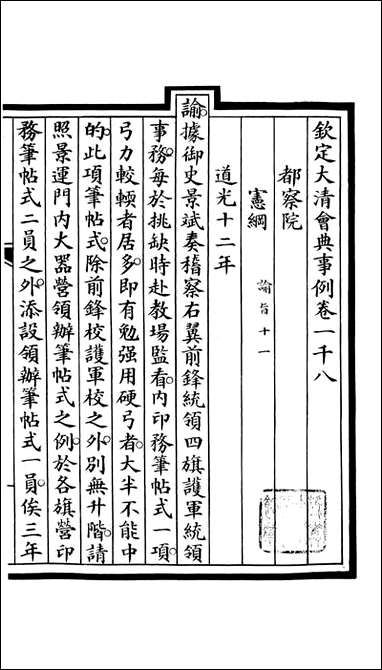 欽定大清會典事例卷一千八
都察院
憲綱 諭旨十一
道光十二年
諭據御史景斌奏稽察右翼前鋒統領四旗護軍統領
事務每於挑缺時赴教場監看內印務筆帖式一項
弓力較輭者居多即有勉强用硬弓者大半不能中
的此項筆帖式除前鋒校護軍校之外別無升階請
照景運門內大器營領辦筆帖式之例於各旗營印
務筆帖式二員之外添設領辦筆帖式一員俟三年